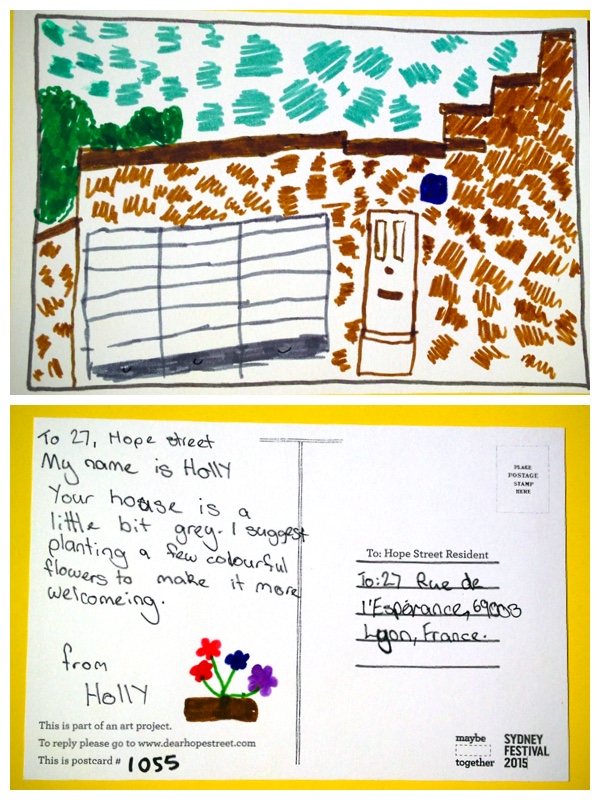 To 27, Hope street
My name is Holly
Your house is a
little bit grey. I suggest
planting a few colourful
flowers to make it more
welcomeing.
from
Holly
This is part of an art project.
To reply please go to www.dearhopestreet.com
This is postcard # 1055
PLACE
POSTAGE
STAMP
HERE
To: Hope Street Resident
To: 27 Rue de
l'Espérance, 69003
Lyon, France.
maybe
together
SYDNEY
FESTIVAL
2015